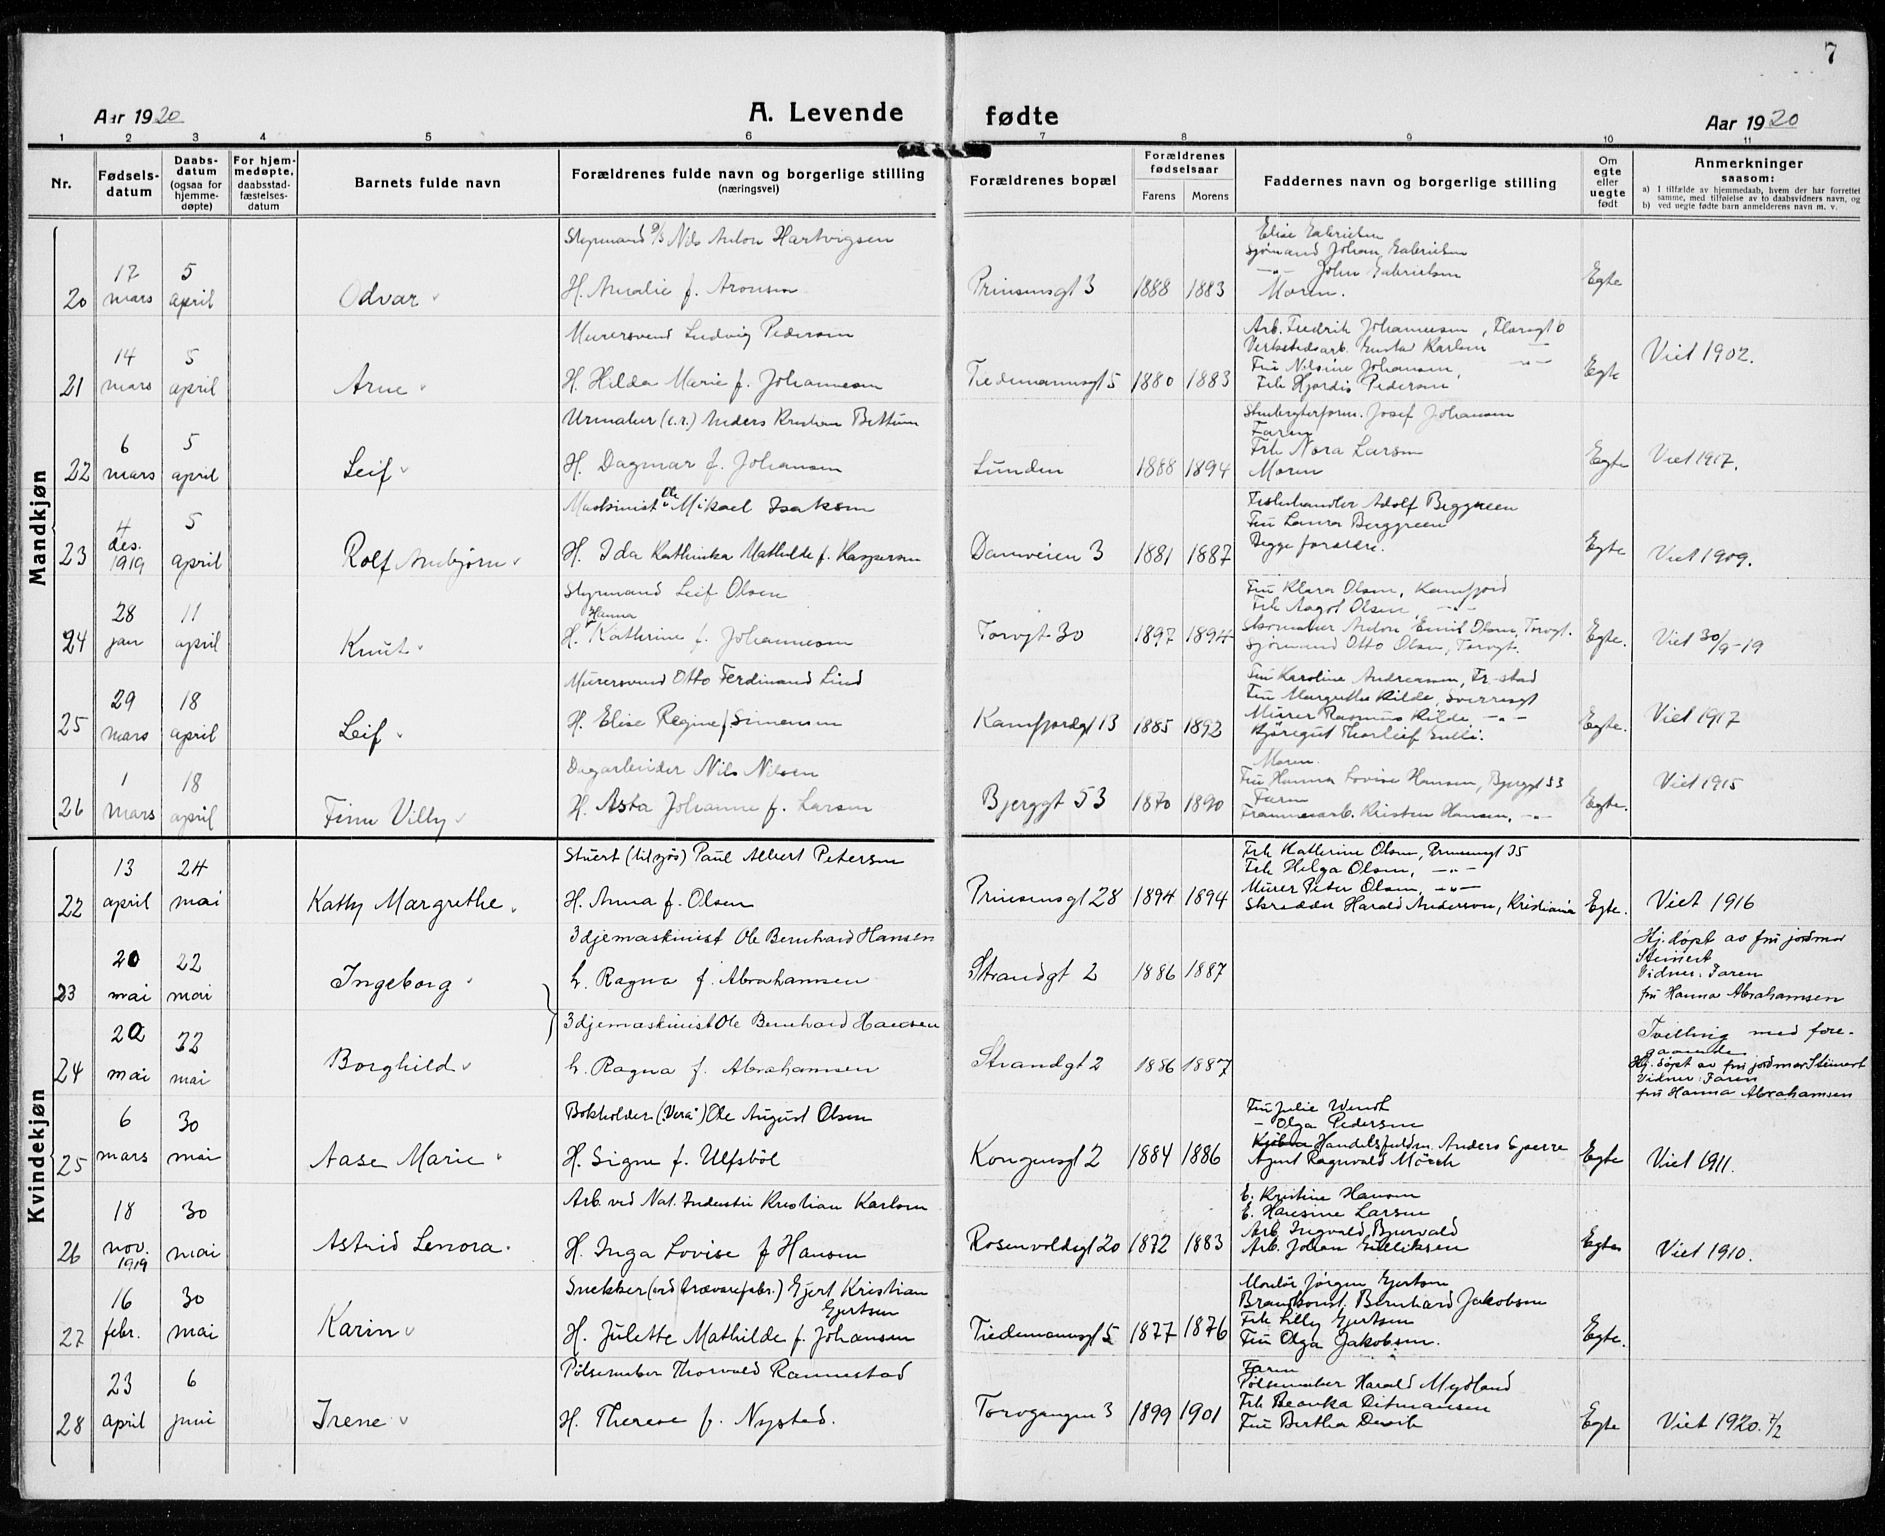 7
Aar 1920
A. Levende fødte
Aar 1920
1 2 3 4 5 6 7 8 9 10 11
Nr.
Fødsels-
datum
Daabs-
datum
(ogsaa for
hjemme-
døpte)
For hjem-
medøpte,
daabsstad-
fæstelses-
datum
Barnets fulde navn
Forældrenes fulde navn og borgerlige stilling
(næringsvei)
Forældrenes bopæl
Forældrenes
fødselsaar
Farens Morens
Faddernes navn og borgerlige stilling
Om
egte
eller
uegte
født
Anmerkninger
saasom:
a) I tilfælde av hjemmedaab, hvem der har forrettet
samme, med tilføielse av to daabsvidners navn, og
b) ved uegte fødte barn anmelderens navn m. v.
Mandkjøn
20
17
mars
5
april
Odvar
Styrmand Nils Anton Hartvigsen
H. Amalie f. Aronsen
Prinsensgt 3
1888 1883
Elise Gabrielsen
Sjømand Johan Gabrielsen
-"- John Gabrielsen
Moren.
Egte
21
14
mars
5
april
Arne
Murersvend Ludvig Pedersen
H. Hilda Marie f. Johannesen
Tiedemannsgt 5
1880 1883
Arb. Fredrik Johannesen, 6
Verkstedsarb. Gustav Karlsen
Fru Nilsine Johansen, -"-
Frk Hjordis Pedersen
Egte
Viet 1902.
22
6
mars
5
april
Leif
Urmaker (c.r.) Anders Kristian Bettum
H. Dagmar f. Johansen
Lunden
1888 1894
Josef Johansen
Faren
Frk Nora Larsen
Moren
Egte
Viet 1917.
23
4
des.
1919
5
april
Rolf Arnbjørn
Maskinist Ole Mikael Isaksen
H. Ida Kathinka Mathilde f. Kaspersen
Damveien 3
1881 1887
Fiskehandler Adolf Berggreen
Fru Laura Berggreen
Begge forældre.
Egte
Viet 1909.
24
28
jan
11
april
Knut
Styrmand Leif Olsen
Hanna
H. Kathrine f. Johannesen
Torvgt 30
1897 1894
Fru Klara Olsen, Kamfjord
Frk Aagot Olsen, -"-
Skomaker Anton Emil Olsen, Torvgt.
Sjømand Otto Olsen, Torvgt.
Egte.
Viet 30/9-19
25
29
mars
18
april
Leif
Murersvend Otto Ferdinand Lind
H. Elise Regine f. Simensen
Kamfjordgt 13
1885 1892
Fru Karoline Andreassen, Fr-stad
Fru Margrethe Kilde, Sverresgt
Murer Rasmus Kilde, -"-
Kjøregut Thorleif Gulli.
Egte.
Viet 1917
26
1
mars
18
april
Finn Villy
Dagarbeider Nils Nilsen
H. Asta Johanne f. Larsen
Bjerggt 53
1870 1890
Moren.
Fru Hanna Lovise Hansen, Bjerggt 53
Faren
Kristen Hansen, -"-
Egte.
Viet 1915
Kvindekjøn
22
13
april
24
mai
Kathy Margrethe
Stuert (tilsjøs) Paul Albert Petersen
H. Anna f. Olsen
Prinsensgt 28
1894 1894
Frk Kathrine Olsen, Prinsensgt 35
Frk Helga Olsen, -"-
Murer Peter Olsen, -"-
Skredder Harald Anderson, Kristiania
Egte.
Viet 1916
23
20
mai
22
mai
Ingeborg
3djemaskinist Ole Bernhard Hansen
h. Ragna f. Abrahamsen
Strandgt 2
1886 1887
Hj. døpt av fru jordmor
Steinert
Vidner: Faren
fru Hanna Abrahamsen
24
20
mai
22
mai
Borghild
3djemaskinist Ole Bernhard Hansen
h. Ragna f. Abrahamsen
Strandgt 2
1886 1887
Tvilling med fore-
gaaende
Hj. døpt av fru jordmor Steinert
Vidner: Faren
fru Hanna Abrahamsen
25
6
mars
30
mai
Aase Marie
Bokholder ("Vera") Ole August Olsen
H. Signe f. Ulfsbøl
Kongensgt 2
1884 1886
Fru Julie Wendt
- Olga Pedersen
Handelsfuldm. Anders Gjerre
Agent Ragnvald Mörch
Egte
Viet 1911.
26
18
nov.
1919
30
mai
Astrid Lenora
Arb. ved Nat. Industri Kristian Karlsen
H. Inga Lovise f Hansen
Rosenvoldsgt 20
1872 1883
E. Kristine Hansen
E. Hansine Larsen
Arb. Ingvald Bjurvald
Arb. Johan Gulliksen
Egte
Viet 1910.
27
16
febr.
30
mai
Karin
Snekker (ved trævarefabr.) Gjert Kristian
Gjertsen
H. Julette Mathilde f. Johansen
Tiedemannsgt 5
1877 1876
Montør Jørgen Gjertsen
Brandkonst. Bernhard Jakobsen
Frk Lilly Gjertsen
Fru Olga Jakobsen.
Egte.
28
23
april
6
juni
Irene
Pølsemaker Thorvald Rannestad
H. Therese f. Nysted.
Torvgangen 3
1899 1901
Faren
Pølsemaker Harald Mydland
Frk Beanka Ditmansen
Fru Bertha
Egte
Viet 1920. 7/2